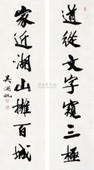 道從文字窺三極
家近湖山擁百城